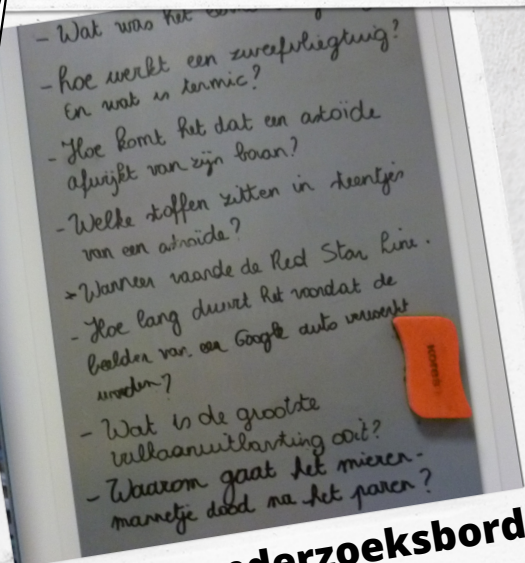 - Wat was het
- hoe werkt een zweefvliegtuig?
En wat is termic?
- Hoe komt het dat een astoïde
afwijkt van zijn baan?
- Welke stoffen zitten in steentjes
van een astroïde?
* Wanneer vaarde de Red Star Line.
- Hoe lang duurt het voordat de
beelden van een Google auto verwerkt
worden?
- Wat is de grootste
vulkaanuitbarsting ooit?
- Waarom gaat het mieren-
mannetje dood na het paren?